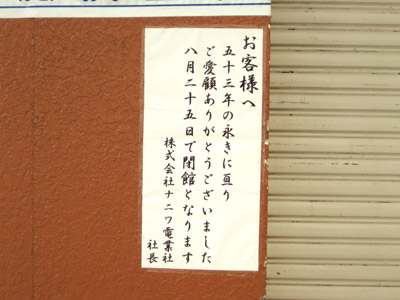 お客様へ
五十三年の永きに亘り
ご愛顧ありがとうございました
八月二十五日で閉館となります
株式会社ナニワ電業社
社長